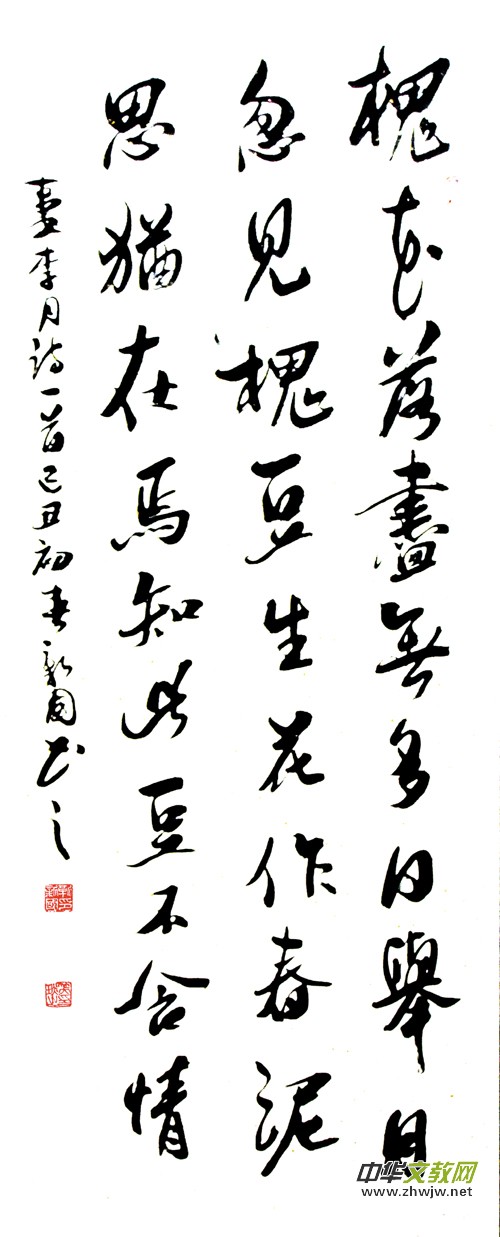 槐花落盡無多日舉目
忽見槐豆生花作春泥
思猶在焉知此豆不含情
李月詩一首己丑初春新國書之
中华文教网
www.zhwjw.net